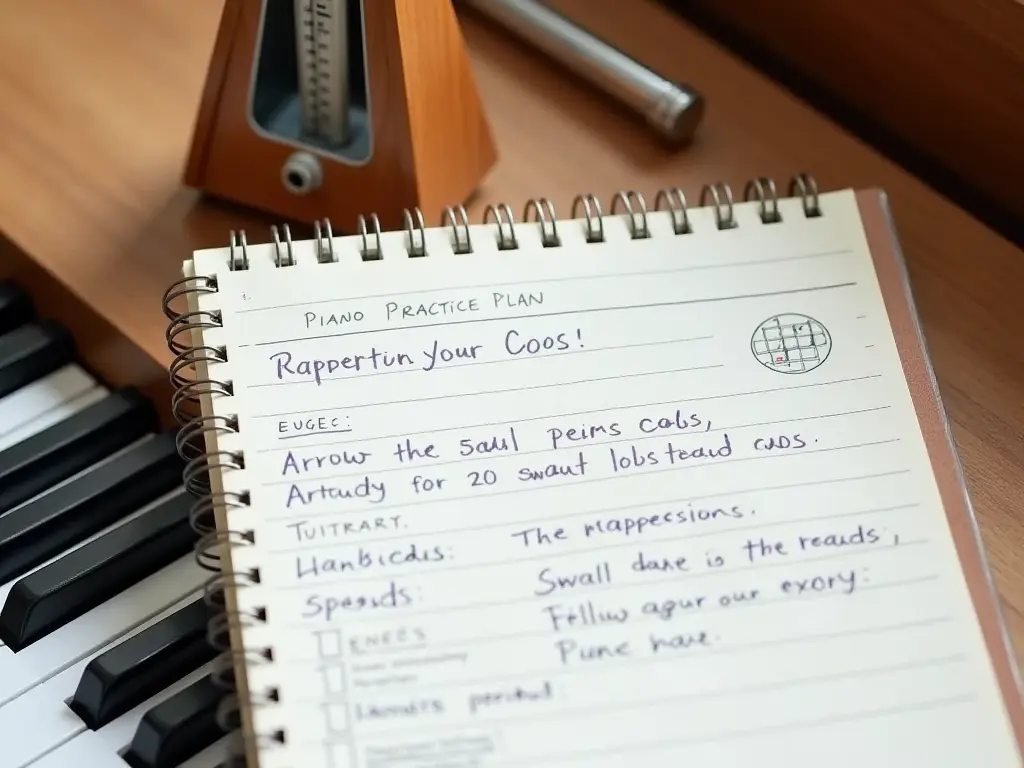 1.
PIANO PRACTICE PLAN
Rappertin your Coos!
EUGEC:
Arrow the saul peims cabs,
Artaudy for 20 swaut lobs teaud cuos.
TUITRARY.
Hanbicdis: The mappecsions.
Speards: Swall dane is the reauds,
Félliw agur our exory:
ENEES Pune have.
peritul: